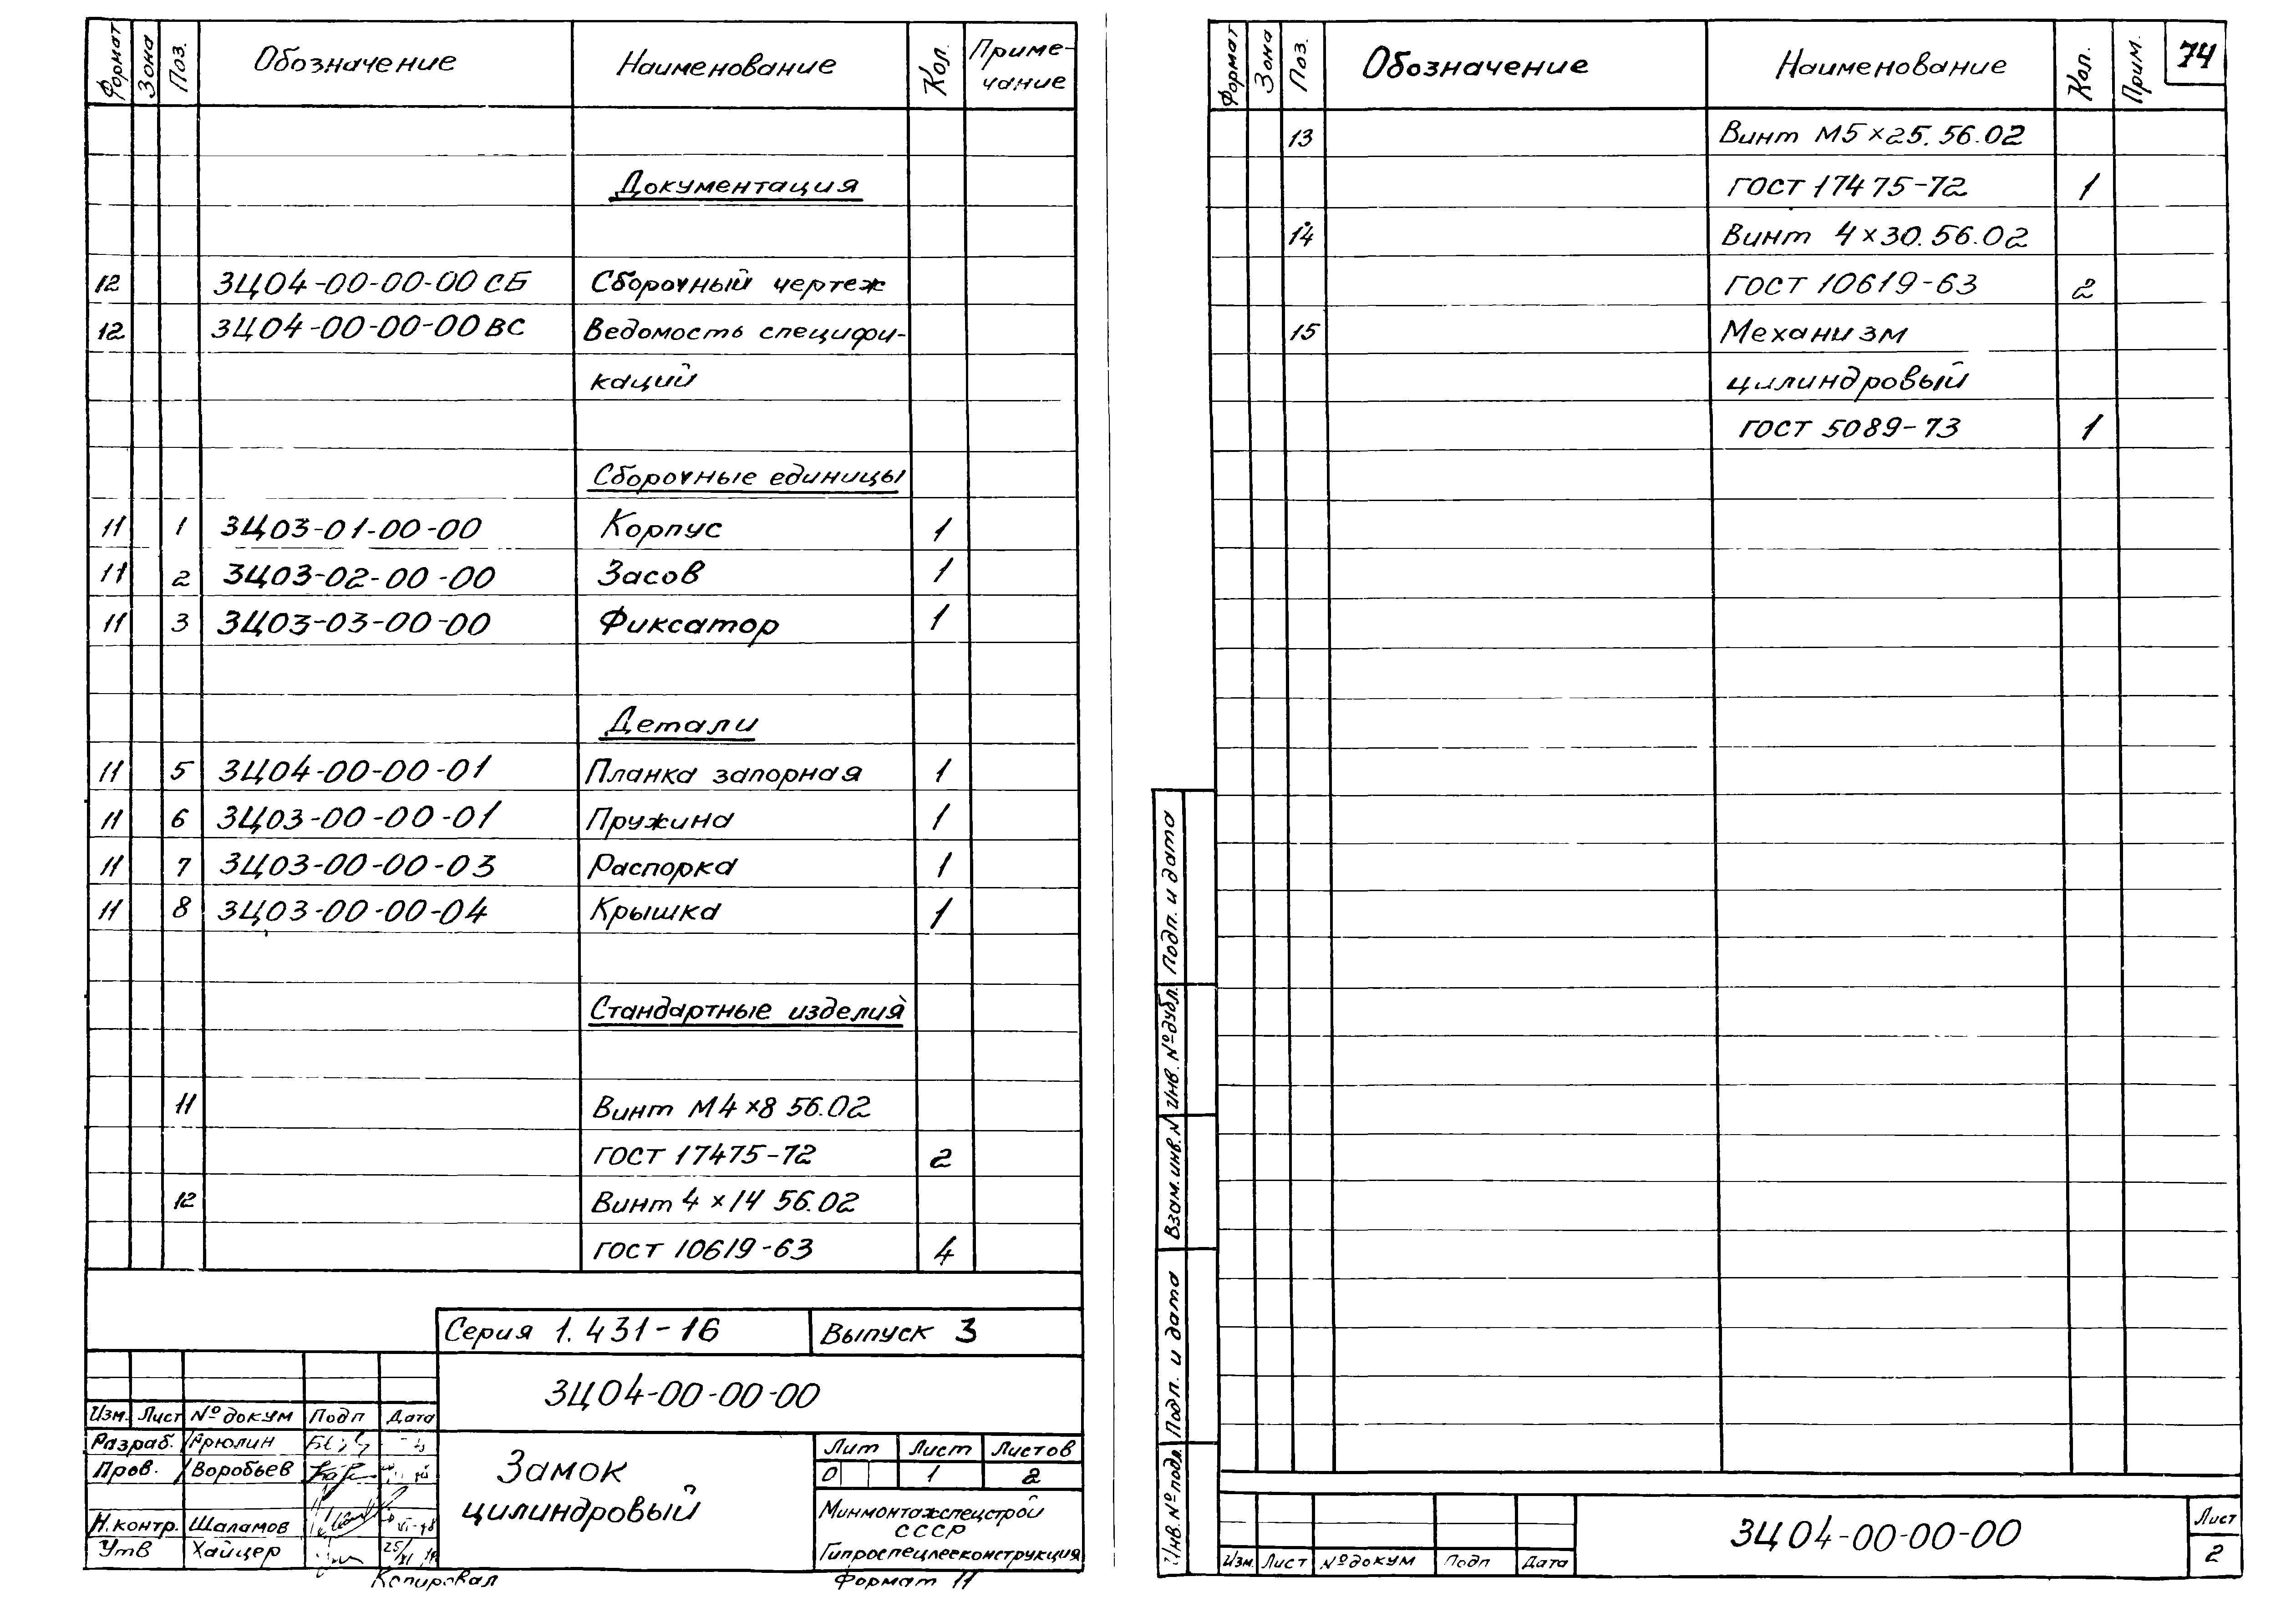 Формат Зона Поз. Обозначение Наименование Кол. Приме-
чание
Документация
12 ЗЦ04-00-00-00 СБ Сборочный чертеж
12 ЗЦ04-00-00-00 ВС Ведомость специфи-
каций
Сборочные единицы
11 1 ЗЦ03-01-00-00 Корпус 1
11 2 ЗЦ03-02-00-00 Засов 1
11 3 ЗЦ03-03-00-00 Фиксатор 1
Детали
11 5 ЗЦ04-00-00-01 Планка запорная 1
11 6 ЗЦ03-00-00-01 Пружина 1
11 7 ЗЦ03-00-00-03 Распорка 1
11 8 ЗЦ03-00-00-04 Крышка 1
Стандартные изделия
11 Винт М4×8 56.02
ГОСТ 17475-72 2
12 Винт 4×14 56.02
ГОСТ 10619-63 4
Серия 1.431-16 Выпуск 3
ЗЦ04-00-00-00
Изм. Лист № докум Подп Дата
Разраб.
Пров. Воробьев
Н.контр. Шаламов
Утв Хайцер
Замок
цилиндровый
Лит Лист Листов
О 1 2
Минмонтажспецстрой
СССР
Гипроспецлегконструкция
Копировал Формат 11
Формат Зона Поз. Обозначение Наименование Кол. Прим. 74
13 Винт М5×25.56.02
ГОСТ 17475-72 1
14 Винт 4×30.56.02
ГОСТ 10619-63 2
15 Механизм
цилиндровый
ГОСТ 5089-73 1
Подп. и дата
Инв. № дубл.
Взам. инв. №
Подп. и дата
Инв. № подл.
Изм. Лист № докум Подп Дата
ЗЦ04-00-00-00
Лист
2